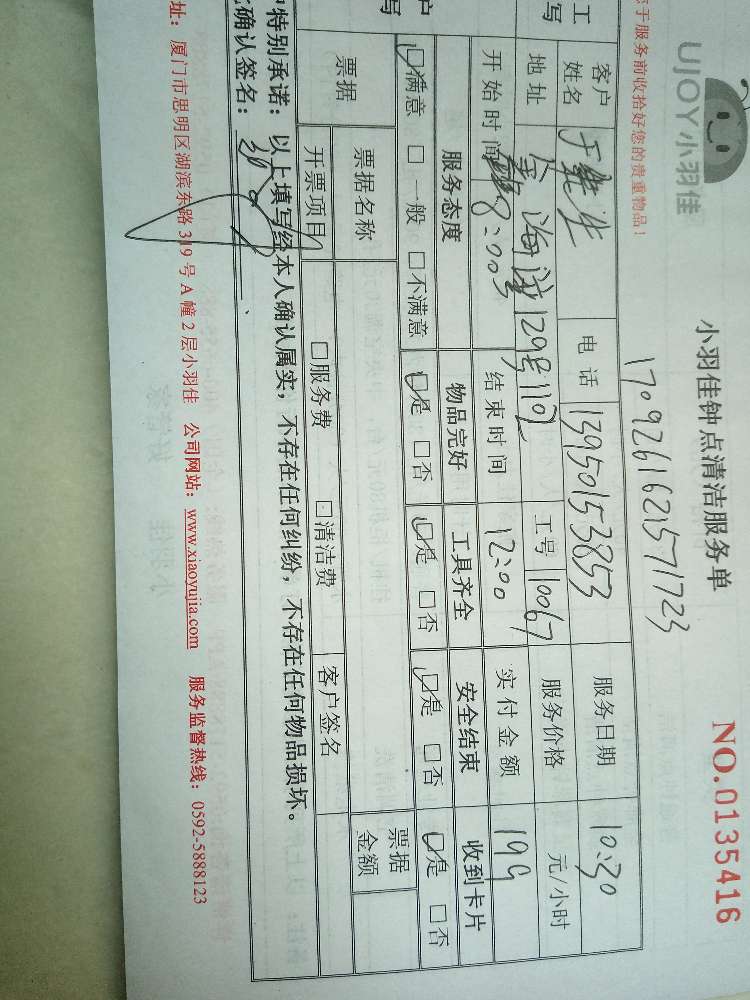 UJOY小羽佳
小羽佳钟点清洁服务单
NO.0135416
于服务前收拾好您的贵重物品！
1709261621571723
工
写
客户姓名
电话
13950153853
服务日期
10.30
地址
海
129号110
工号
10067
服务价格
元/小时
开始时间
8:00
结束时间
12:00
实付金额
199
户
写
服务态度
物品完好
工具齐全
安全结束
收到卡片
☑满意 □一般 □不满意
☑是 □否
☑是 □否
☑是 □否
☑是 □否
票据
票据名称
票据金额
开票项目
□服务费 □清洁费
客户签名
特别承诺：以上填写经本人确认属实，不存在任何纠纷，不存在任何物品损坏。
确认签名：
址：厦门市思明区湖滨东路319号A幢2层小羽佳 公司网站：www.xiaoyujia.com 服务监督热线：0592-5888123